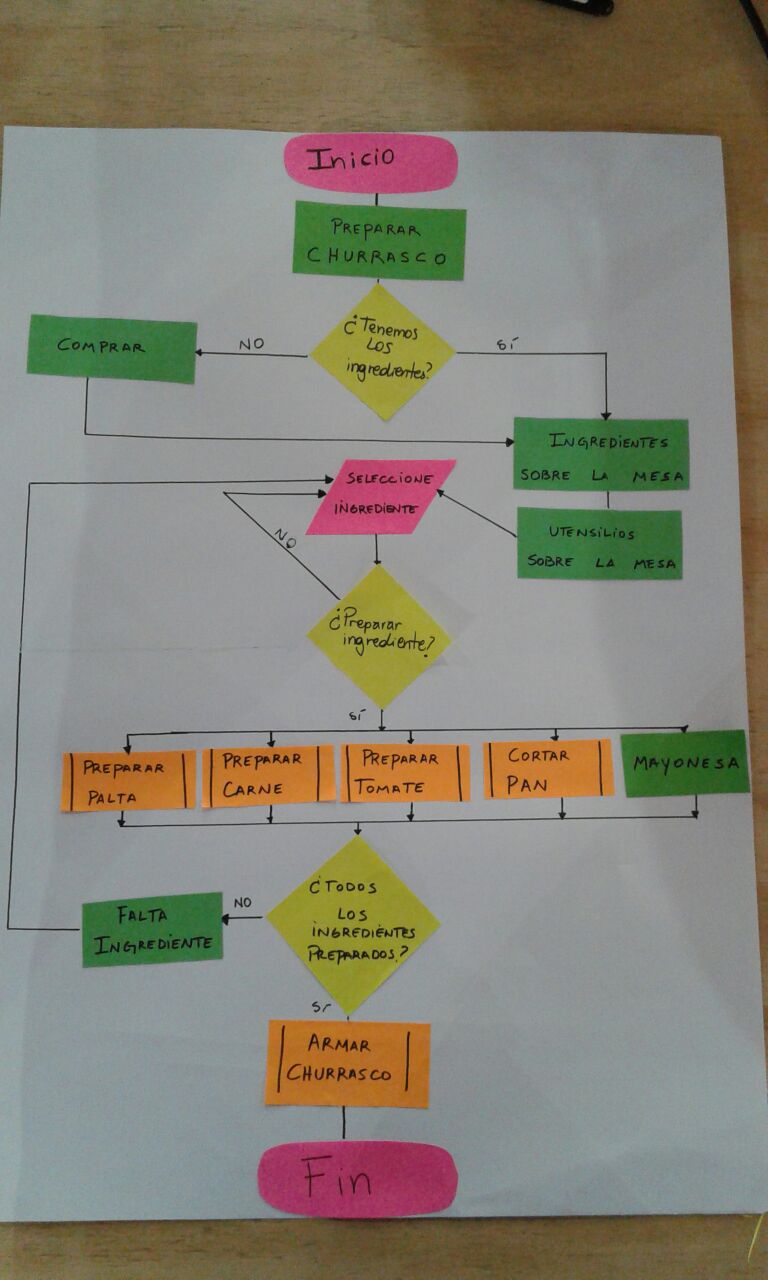 Inicio
PREPARAR
CHURRASCO
¿Tenemos
LOS
ingredientes?
NO
SÍ
COMPRAR
INGREDIENTES
SOBRE LA MESA
SELECCIONE
INGREDIENTE
UTENSILIOS
SOBRE LA MESA
NO
¿Preparar
ingrediente?
SÍ
PREPARAR
PALTA
PREPARAR
CARNE
PREPARAR
TOMATE
CORTAR
PAN
MAYONESA
¿TODOS
LOS
INGREDIENTES
PREPARADOS?
NO
FALTA
INGREDIENTE
SÍ
ARMAR
CHURRASCO
Fin